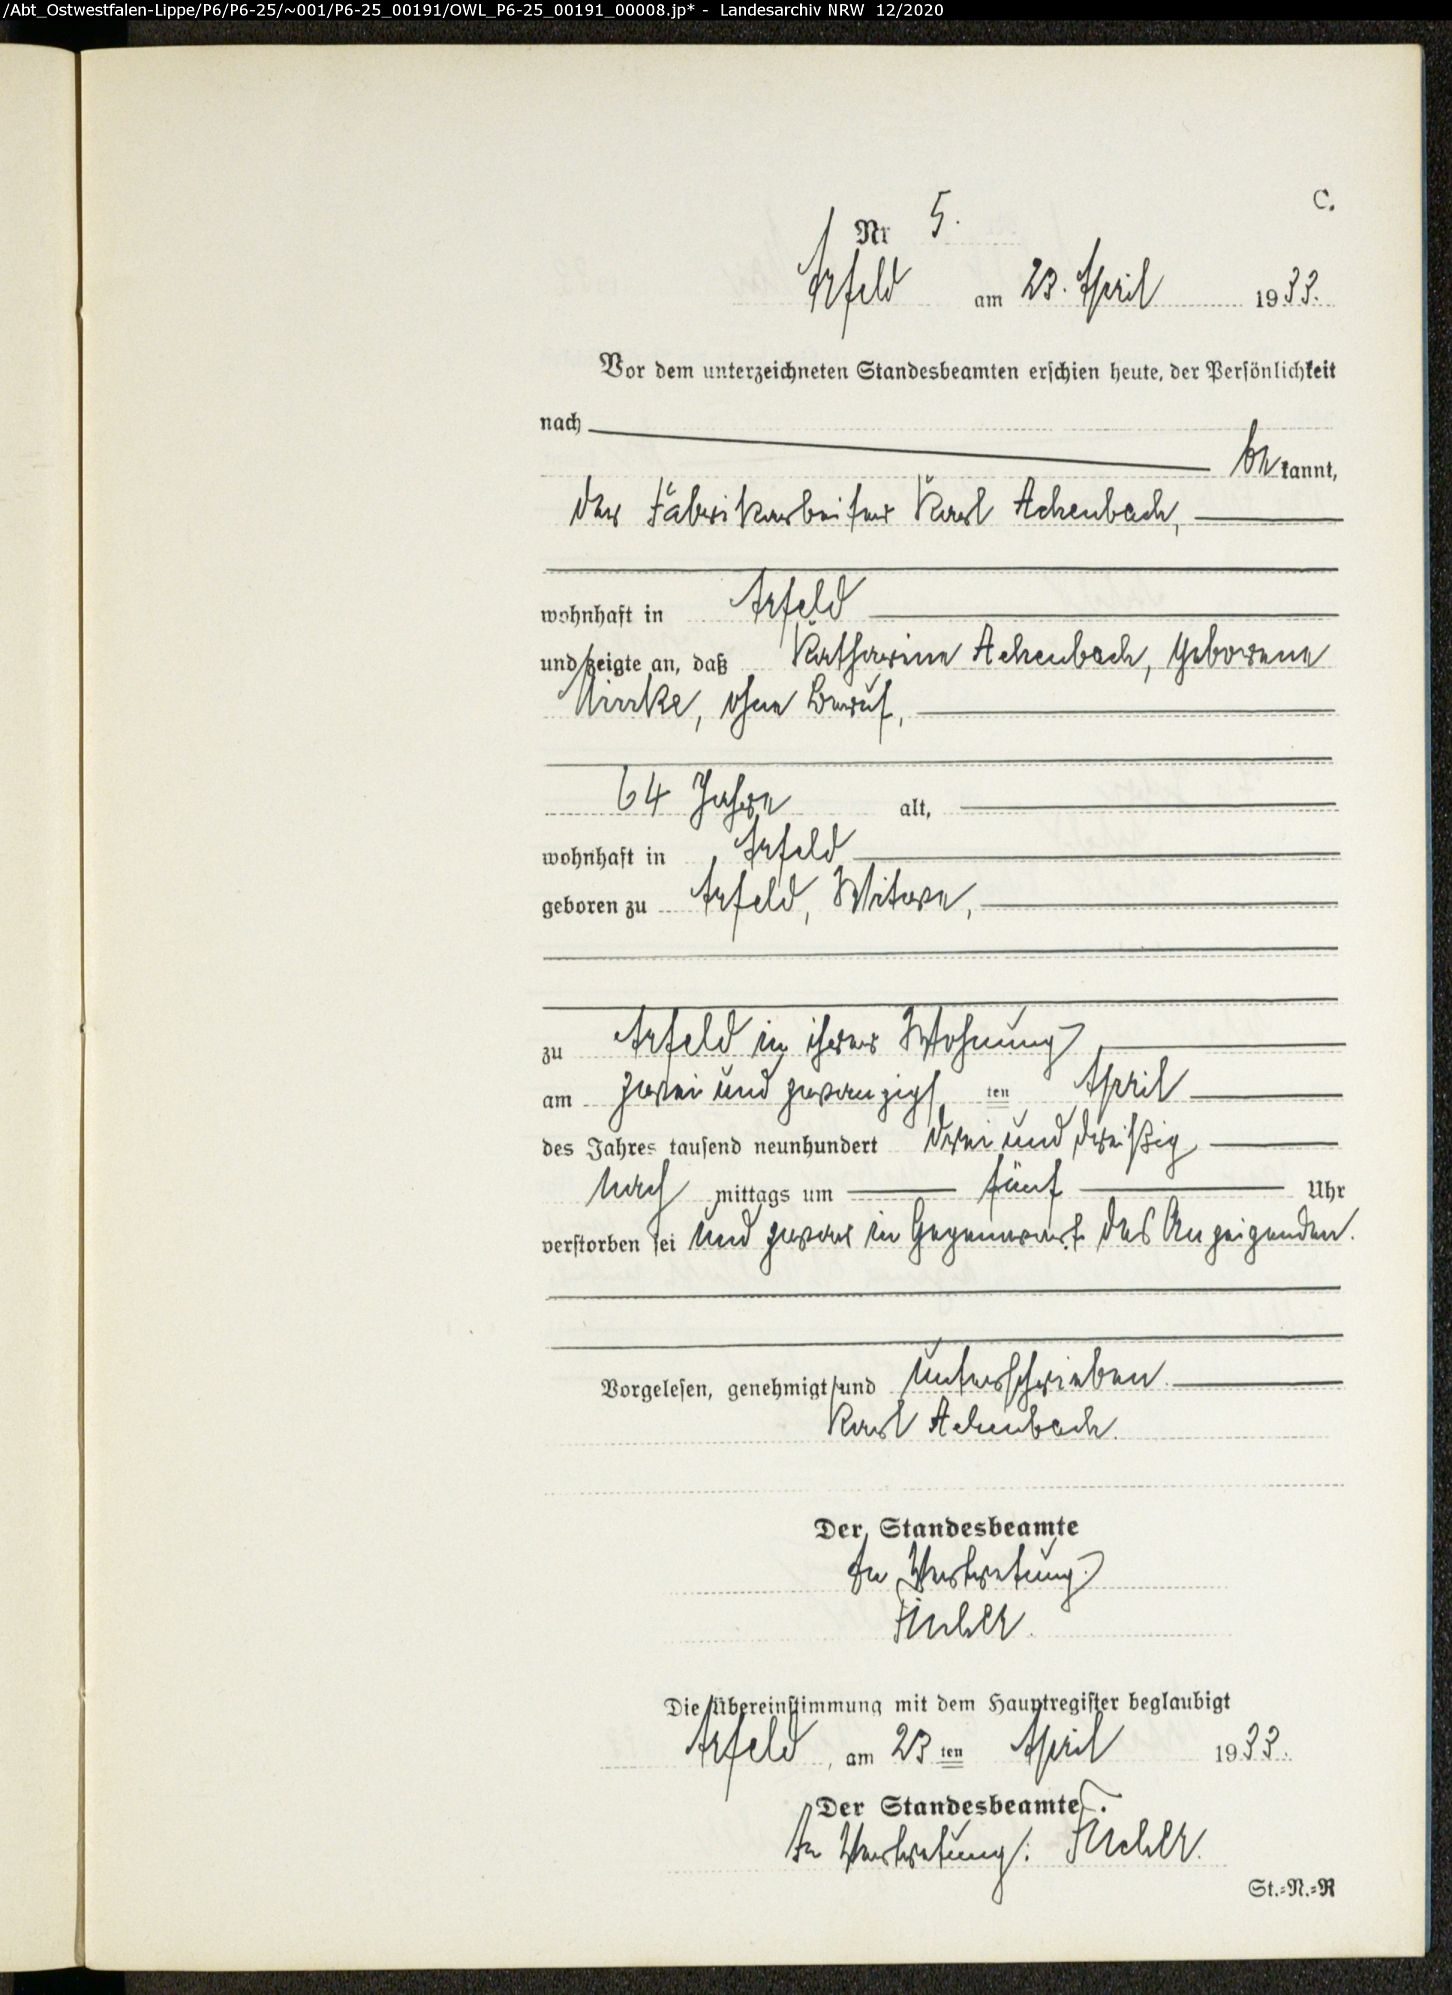 /Abt_Ostwestfalen-Lippe/P6/P6-25/~001/P6-25_00191/OWL_P6-25_00191_00008.jp* - Landesarchiv NRW 12/2020
C.
Nr 5.
Arfeld am 23. April 1933.
Vor dem unterzeichneten Standesbeamten erschien heute, der Persönlichkeit
nach
be kannt,
der Fabrikarbeiter Karl Achenbach,
wohnhaft in Arfeld
und zeigte an, daß Katharine Achenbach, geborene
ohne Beruf,
64 Jahre alt,
wohnhaft in Arfeld
geboren zu Arfeld, Witwe,
zu Arfeld in ihrer Wohnung
am zwei und zwanzigs ten April
des Jahres tausend neunhundert drei und dreißig
nach mittags um fünf Uhr
verstorben sei und zwar in Gegenwart des Anzeigenden.
Vorgelesen, genehmigt und unterschrieben
Karl Achenbach.
Der Standesbeamte
In Vertretung
Die Übereinstimmung mit dem Hauptregister beglaubigt
Arfeld, am 23 ten April 1933.
Der Standesbeamte.
In Vertretung:
St.=N.=R